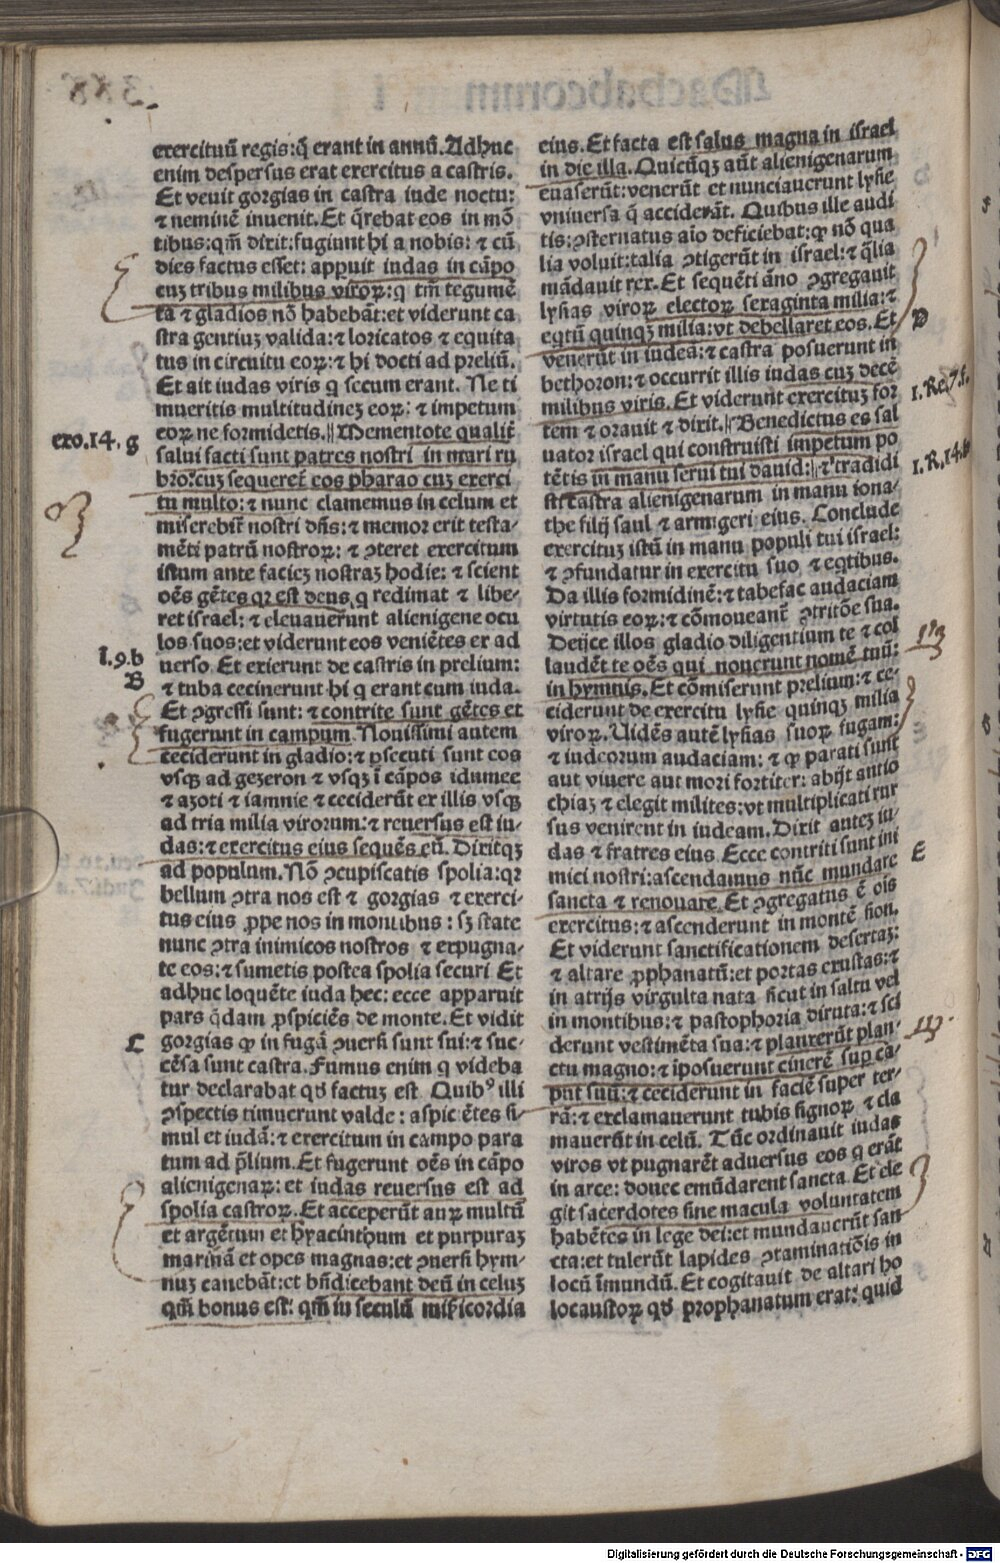 exercituū regis: q̄ erant in annū. Adhuc
enim despersus erat exercitus a castris.
Et venit gorgias in castra iude noctu:
⁊ neminē invenit. Et q̄rebat eos in mō
tibus: qm̄ dixit: fugiunt hi a nobis: ⁊ cū
dies factus esset: appuit iudas in cāpo
cuȝ tribus milibus viroꝝ: q tm̄ tegumē
ta ⁊ gladios nō habebāt: et viderunt ca
stra gentiuȝ valida: ⁊ loricatos ⁊ equita
tus in circuitu eoꝝ: ⁊ hi docti ad preliū.
Et ait iudas viris q secum erant. Ne ti
mueritis multitudineȝ eoꝝ: ⁊ impetum
exo.14.g
eoꝝ ne formidetis. Mementote qualit̄
salui facti sunt patres nostri in mari ru
bro: cuȝ sequeret̄ eos pharao cuȝ exerci
tu multo: ⁊ nunc clamemus in celum et
miserebit̄ nostri dn̄s: ⁊ memor erit testa-
mēti patrū nostroꝝ: ⁊ ꝯteret exercitum
istum ante facieȝ nostraȝ hodie: ⁊ scient
oēs gētes qꝛ est deus q redimat ⁊ libe-
ret israel: ⁊ elevauerunt alienigene ocu
los suos: et viderunt eos veniētes ex ad
I.9.b
B
uerso. Et exierunt de castris in prelium:
⁊ tuba cecinerunt hi q erant cum iuda.
Et ꝯgressi sunt: ⁊ contrite sunt gētes et
fugerunt in campum. Nouissimi autem
ceciderunt in gladio: ⁊ ꝑsecuti sunt eos
vsqꝫ ad gezeron ⁊ vsqȝ ī cāpos idumee
⁊ azoti ⁊ iamnie ⁊ ceciderūt ex illis vsqꝫ
ad tria milia virorum: ⁊ reuersus est iu-
das: ⁊ exercitus eius sequēs eū. Dixitqȝ
ad populum. Nō ꝯcupiscatis spolia: qꝛ
bellum ꝯtra nos est ⁊ gorgias ⁊ exerci-
tus eius ꝓpe nos in montibus: sȝ state
nunc ꝯtra inimicos nostros ⁊ expugna-
te eos: ⁊ sumetis postea spolia securi Et
adhuc loquēte iuda hec: ecce apparuit
pars q̄dam ꝓspiciēs de monte. Et vidit
C
gorgias ꝙ in fugā ꝯuersi sunt sui: ⁊ suc-
cēsa sunt castra. Fumus enim q videba
tur declarabat qđ factuȝ est Quibꝰ illi
ꝯspectis timuerunt valde: aspiciētes si-
mul et iudā: ⁊ exercitum in campo para
tum ad p̄lium. Et fugerunt oēs in cāpo
alienigenaꝝ: et iudas reuersus est ad
spolia castroꝝ. Et acceperūt auꝝ multū
et argētum et hyacinthum et purpuraȝ
marinā et opes magnas: et ꝯuersi hym-
nuȝ canebāt: et bn̄dicebant deū in celuȝ
qm̄ bonus est: qm̄ in seculū mīcordia
eius. Et facta est salus magna in israel
in die illa. Quicūqȝ aūt alienigenarum
euaserūt: venerūt et nunciauerunt lysie
vniuersa q̄ acciderāt. Quibus ille audi
tis: ꝯsternatus aīo deficiebat: ꝙ nō qua
lia voluit: talia ꝯtigerūt in israel: ⁊ q̄lia
mādauit rex. Et sequēti āno ꝯgregauit
lysias viroꝝ electoꝝ sexaginta milia: ⁊
D
eqtū quinqȝ milia: vt debellaret eos. Et
venerūt in iudeā: ⁊ castra posuerunt in
bethoron: ⁊ occurrit illis iudas cuȝ decē
I.Re.7.f.
milibus viris. Et viderunt exercituȝ for
tem ⁊ orauit ⁊ dixit. Benedictus es sal
uator israel qui construisti impetum po
I.R.14.
tētis in manu serui tui dauid: ⁊ tradidi
sti castra alienigenarum in manu iona-
the filij saul ⁊ armigeri eius. Conclude
exercituȝ istū in manu populi tui israel:
⁊ ꝯfundatur in exercitu suo ⁊ eqtibus.
Da illis formidinē: ⁊ tabefac audaciam
virtutis eoꝝ: ⁊ cōmoueant̄ ꝯtritōe sua.
Deijce illos gladio diligentium te ⁊ col
laudēt te oēs qui nouerunt nomē tuū:
in hymnis. Et cōmiserunt prelium: ⁊ ce-
ciderunt de exercitu lysie quinqȝ milia
viroꝝ. Uidēs autē lysias suoꝝ fugam:
⁊ iudeorum audaciam: ⁊ ꝙ parati sunt
aut viuere aut mori fortiter: abijt antio
chiaȝ ⁊ elegit milites: vt multiplicati rur
sus venirent in iudeam. Dixit auteȝ iu-
das ⁊ fratres eius Ecce contriti sunt ini
E
mici nostri: ascendamus nūc mundare
sancta ⁊ renouare. Et ꝯgregatus ē oīs
exercitus: ⁊ ascenderunt in montē sion.
Et viderunt sanctificationem desertaȝ:
⁊ altare ꝓphanatū: et portas exustas: ⁊
in atrijs virgulta nata sicut in saltu vel
in montibus: ⁊ pastophoria diruta: ⁊ sci
derunt vestimēta sua: ⁊ planxerūt plan-
ctu magno: ⁊ īposuerunt cinerē suꝑ ca-
put suū: ⁊ ceciderunt in faciē super ter-
rā: ⁊ exclamauerunt tubis signoꝝ ⁊ cla
mauerūt in celū. Tūc ordinauit iudas
viros vt pugnarēt aduersus eos q erāt
in arce: donec emūdarent sancta. Et ele
git sacerdotes sine macula voluntatem
habētes in lege dei: et mundauerūt san
cta: et tulerūt lapides ꝯtaminatiōis in
locū īmundū. Et cogitauit de altari ho
locaustoꝝ qđ prophanatum erat: quid
Digitalisierung gefördert durch die Deutsche Forschungsgemeinschaft - DFG